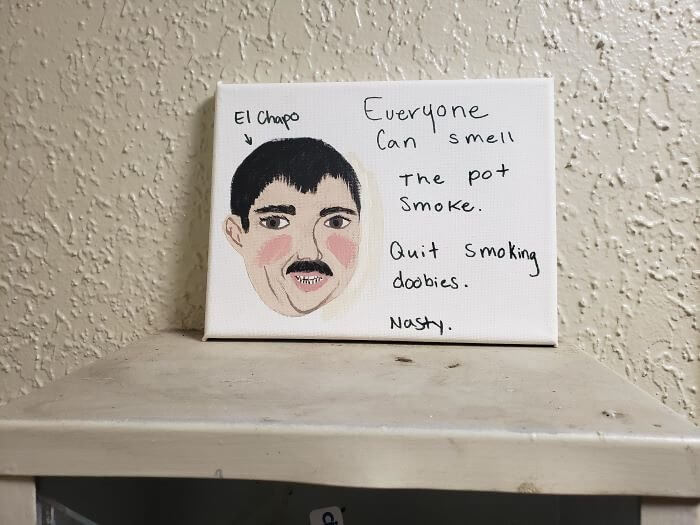 El Chapo
Everyone
Can smell
The pot
Smoke.
Quit smoking
doobies.
Nasty.